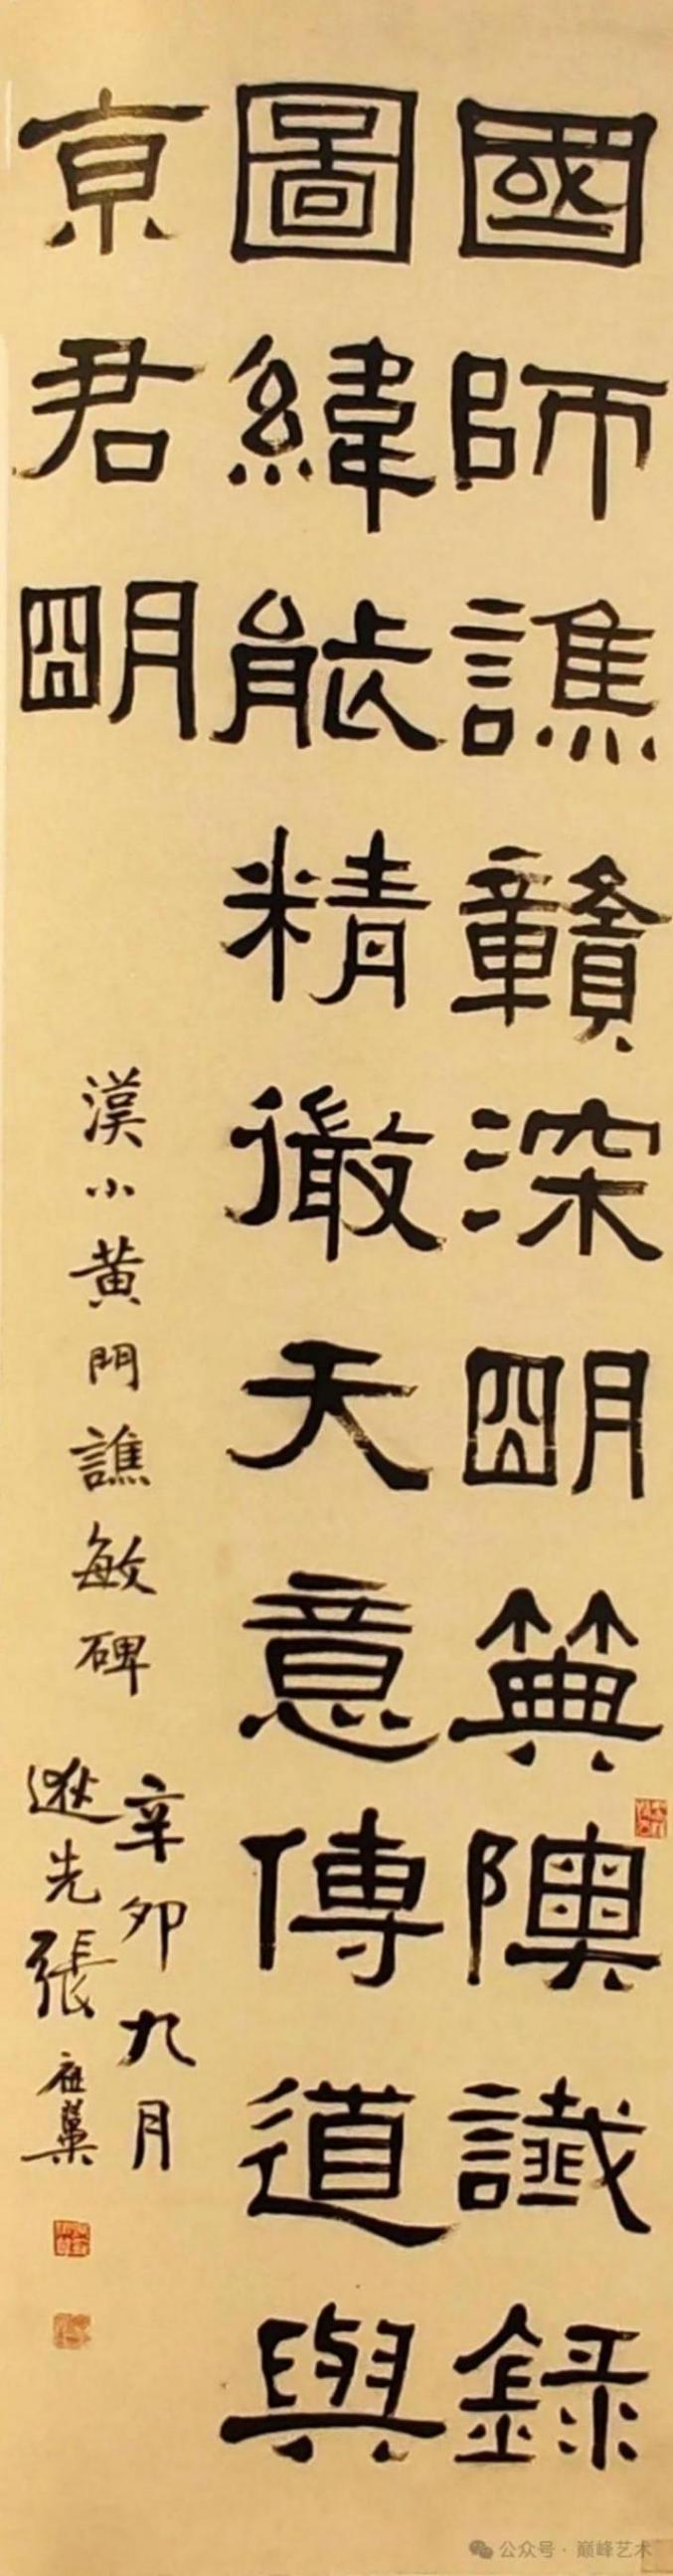 國師譙贛深朙箅隩讖錄
圖緯能精徹天意傳道與
京君朙
漢小黃門譙敏碑
辛卯九月
逖先張
公众号·巅峰艺术